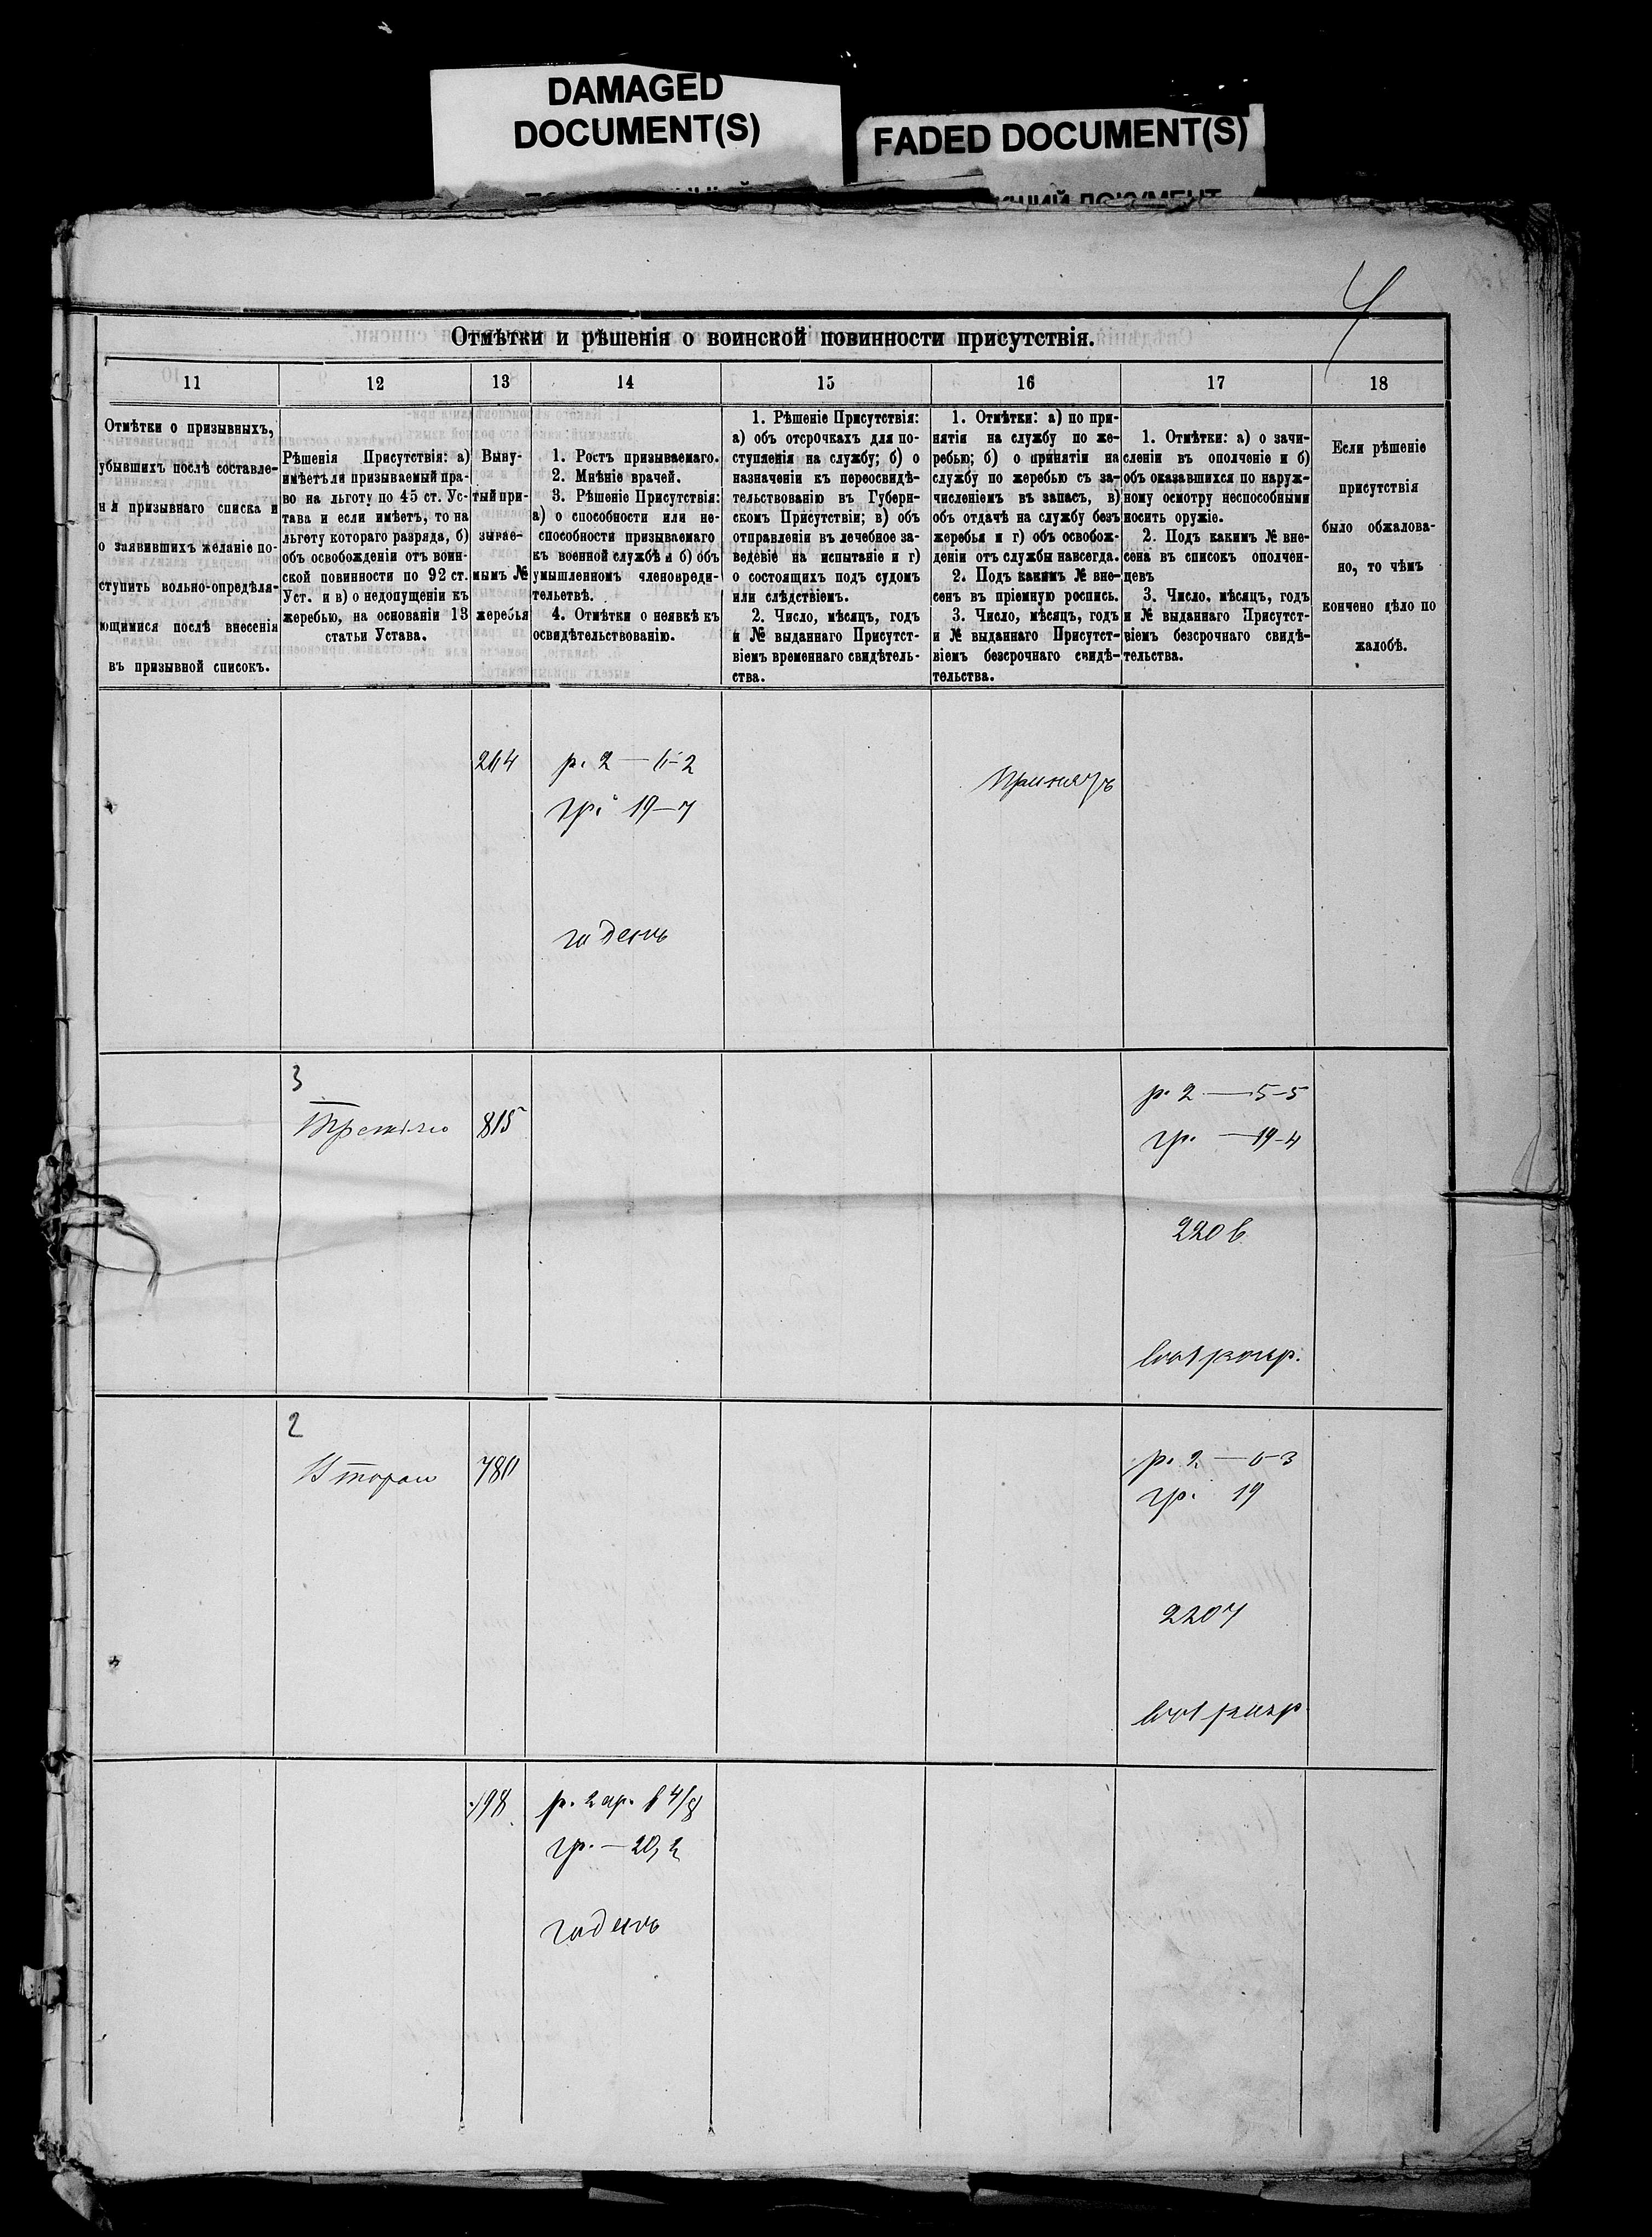 DAMAGED
DOCUMENT(S)
FADED DOCUMENT(S)
4
Отмѣтки и рѣшенія о воинской повинности присутствія.
11 12 13 14 15 16 17 18
Отмѣтки о призывныхъ,
убывшихъ послѣ составле-
ня призывнаго списка и
о заявившихъ желаніе по-
ступить вольно-опредѣля-
ющимися послѣ внесенія
въ призывной списокъ.
Рѣшенія Присутствія: а)
имѣетъ ли призываемый пра-
во на льготу по 45 ст. Ус-
тава и если имѣетъ, то на
льготу котораго разряда, б)
объ освобожденіи отъ воин-
ской повинности по 92 ст.
Уст. и в) о недопущеніи къ
жеребью, на основаніи 13
статьи Устава.
Выну-
тый при-
зывае-
мымъ №
жеребья
1. Ростъ призываемаго.
2. Мнѣніе врачей.
3. Рѣшеніе Присутствія:
а) о способности или не-
способности призываемаго
къ военной службѣ и б) объ
умышленномъ членовреди-
тельствѣ.
4. Отмѣтки о неявкѣ къ
освидѣтельствованію.
1. Рѣшеніе Присутствія:
а) объ отсрочкахъ для по-
ступленія на службу; б) о
назначеніи къ переосвидѣ-
тельствованію въ Губерн-
скомъ Присутствіи; в) объ
отправленіи въ лечебное за-
веденіе на испытаніе и г)
о состоящихъ подъ судомъ
или слѣдствіемъ.
2. Число, мѣсяцъ, годъ
и № выданнаго Присутст-
віемъ временнаго свидѣтель-
ства.
1. Отмѣтки: а) по при-
нятія на службу по же-
ребью; б) о принятіи на
службу по жеребью съ за-
численіемъ въ запасъ, в)
объ отдачѣ на службу безъ
жеребья и г) объ освобож-
деніи отъ службы навсегда.
2. Подъ какимъ № вне-
сенъ въ пріемную роспись.
3. Число, мѣсяцъ, годъ
и № выданнаго Присутст-
віемъ безсрочнаго свидѣ-
тельства.
1. Отмѣтки: а) о зачи-
сленіи въ ополченіе и б)
объ оказавшихся по наруж-
ному осмотру неспособными
носить оружіе.
2. Подъ какимъ № вне-
сена въ списокъ ополчен-
цевъ
3. Число, мѣсяцъ, годъ
и № выданнаго Присутст-
віемъ безсрочнаго свидѣ-
тельства.
Если рѣшеніе
присутствія
было обжалова-
но, то чѣмъ
кончено дѣло по
жалобѣ.
264 р. 2—6-2
гр. 19-7
Принятъ
годенъ
3
Третьяго 815
р. 2—5-5
гр. —19-4
2206
2
780
р. 2—6-3
гр. 19
2207
198 р. 2 ар.
гр.—20,2
годенъ